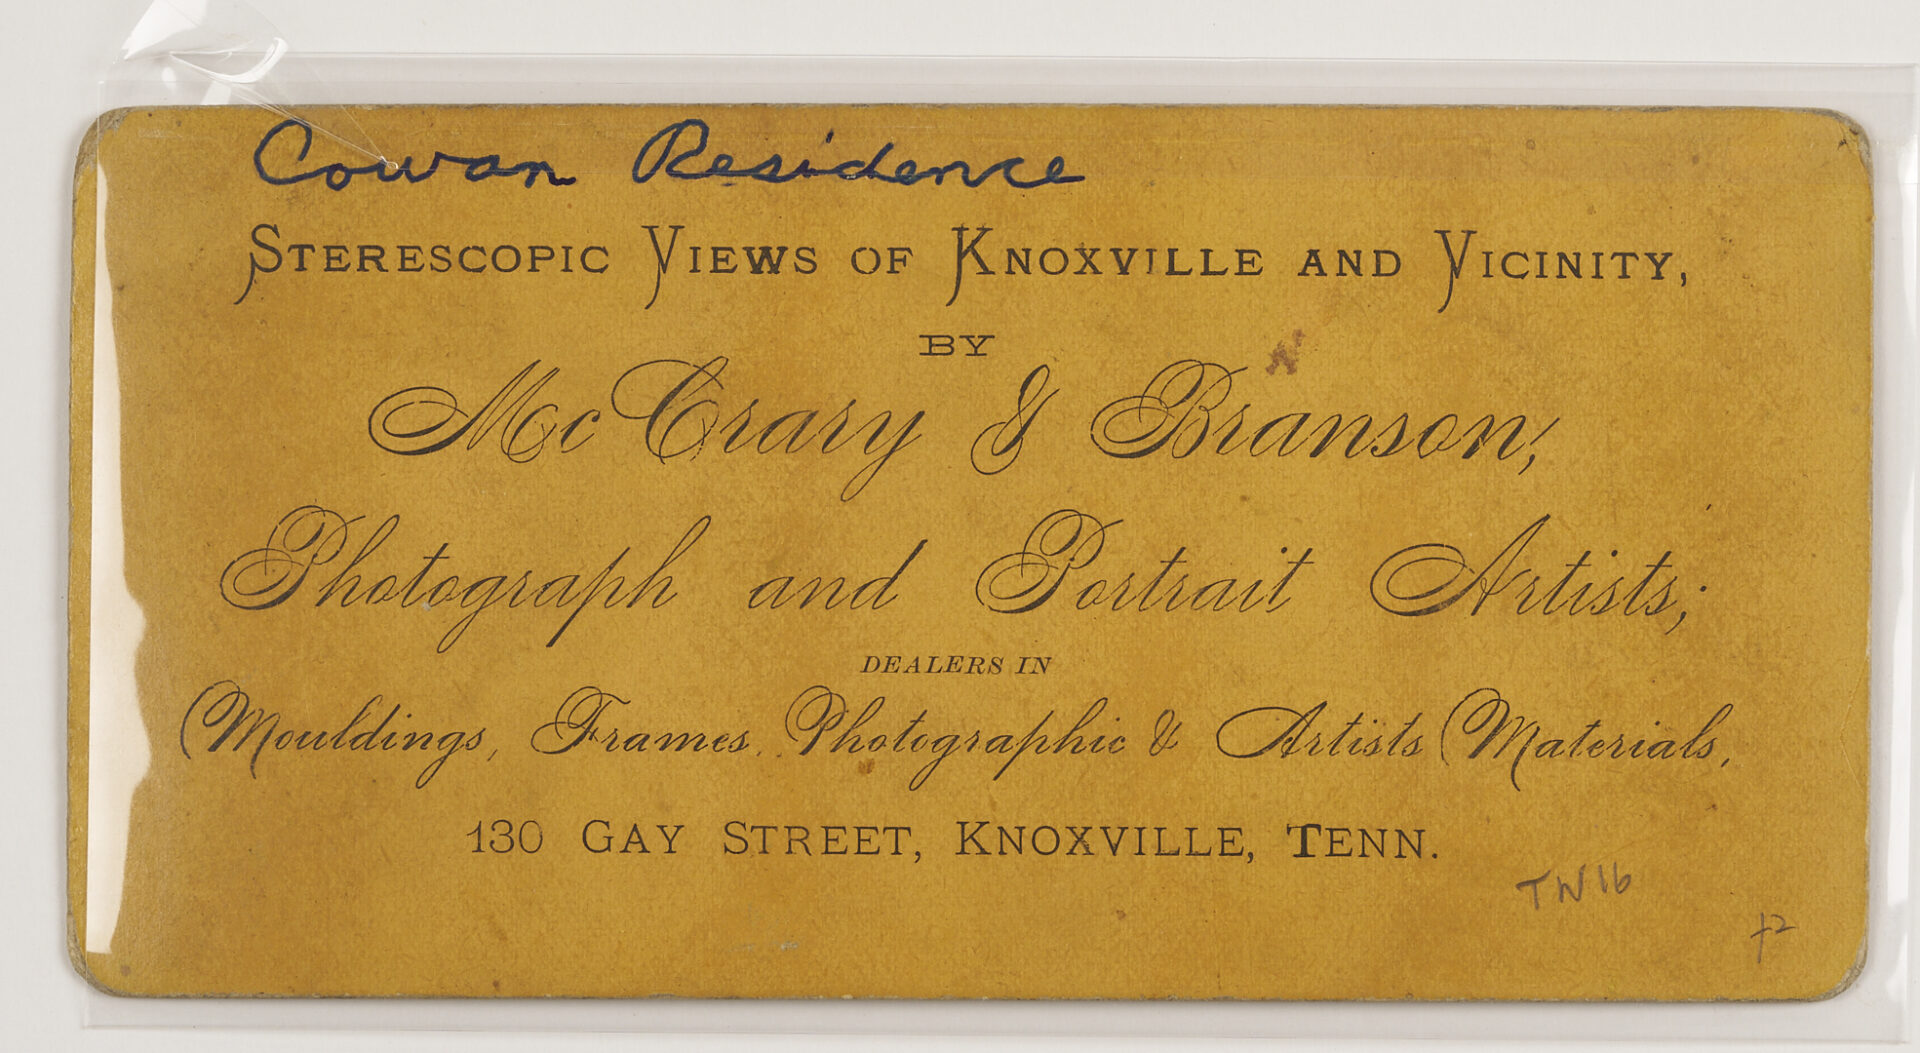 Cowan Residence
STERESCOPIC VIEWS OF KNOXVILLE AND VICINITY,
BY
McCrary & Branson,
Photograph and Portrait Artists;
DEALERS IN
Mouldings, Frames, Photographic & Artists Materials,
130 GAY STREET, KNOXVILLE, TENN.
TN16